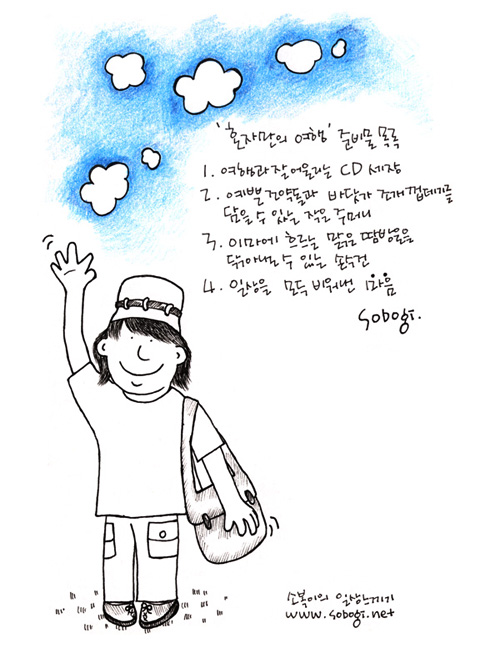 '혼자만의 여행' 준비물 목록
1. 여행과 잘 어울리는 CD 세장
2. 예쁜 조약돌과 바닷가 조개껍데기를
담을 수 있는 작은 주머니
3. 이마에 흐르는 맑은 땀방울을
닦아낼 수 있는 손수건
4. 일상을 모두 비워낸 마음
sobogi.
소복이의 일상
www.sobogi.net